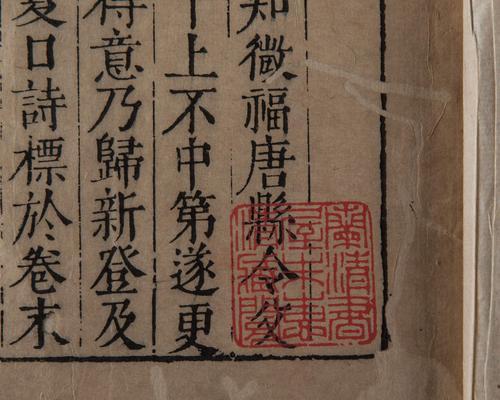 知微福唐縣令父
十上不中第遂更
得意乃歸新登及
夏口詩標於卷末